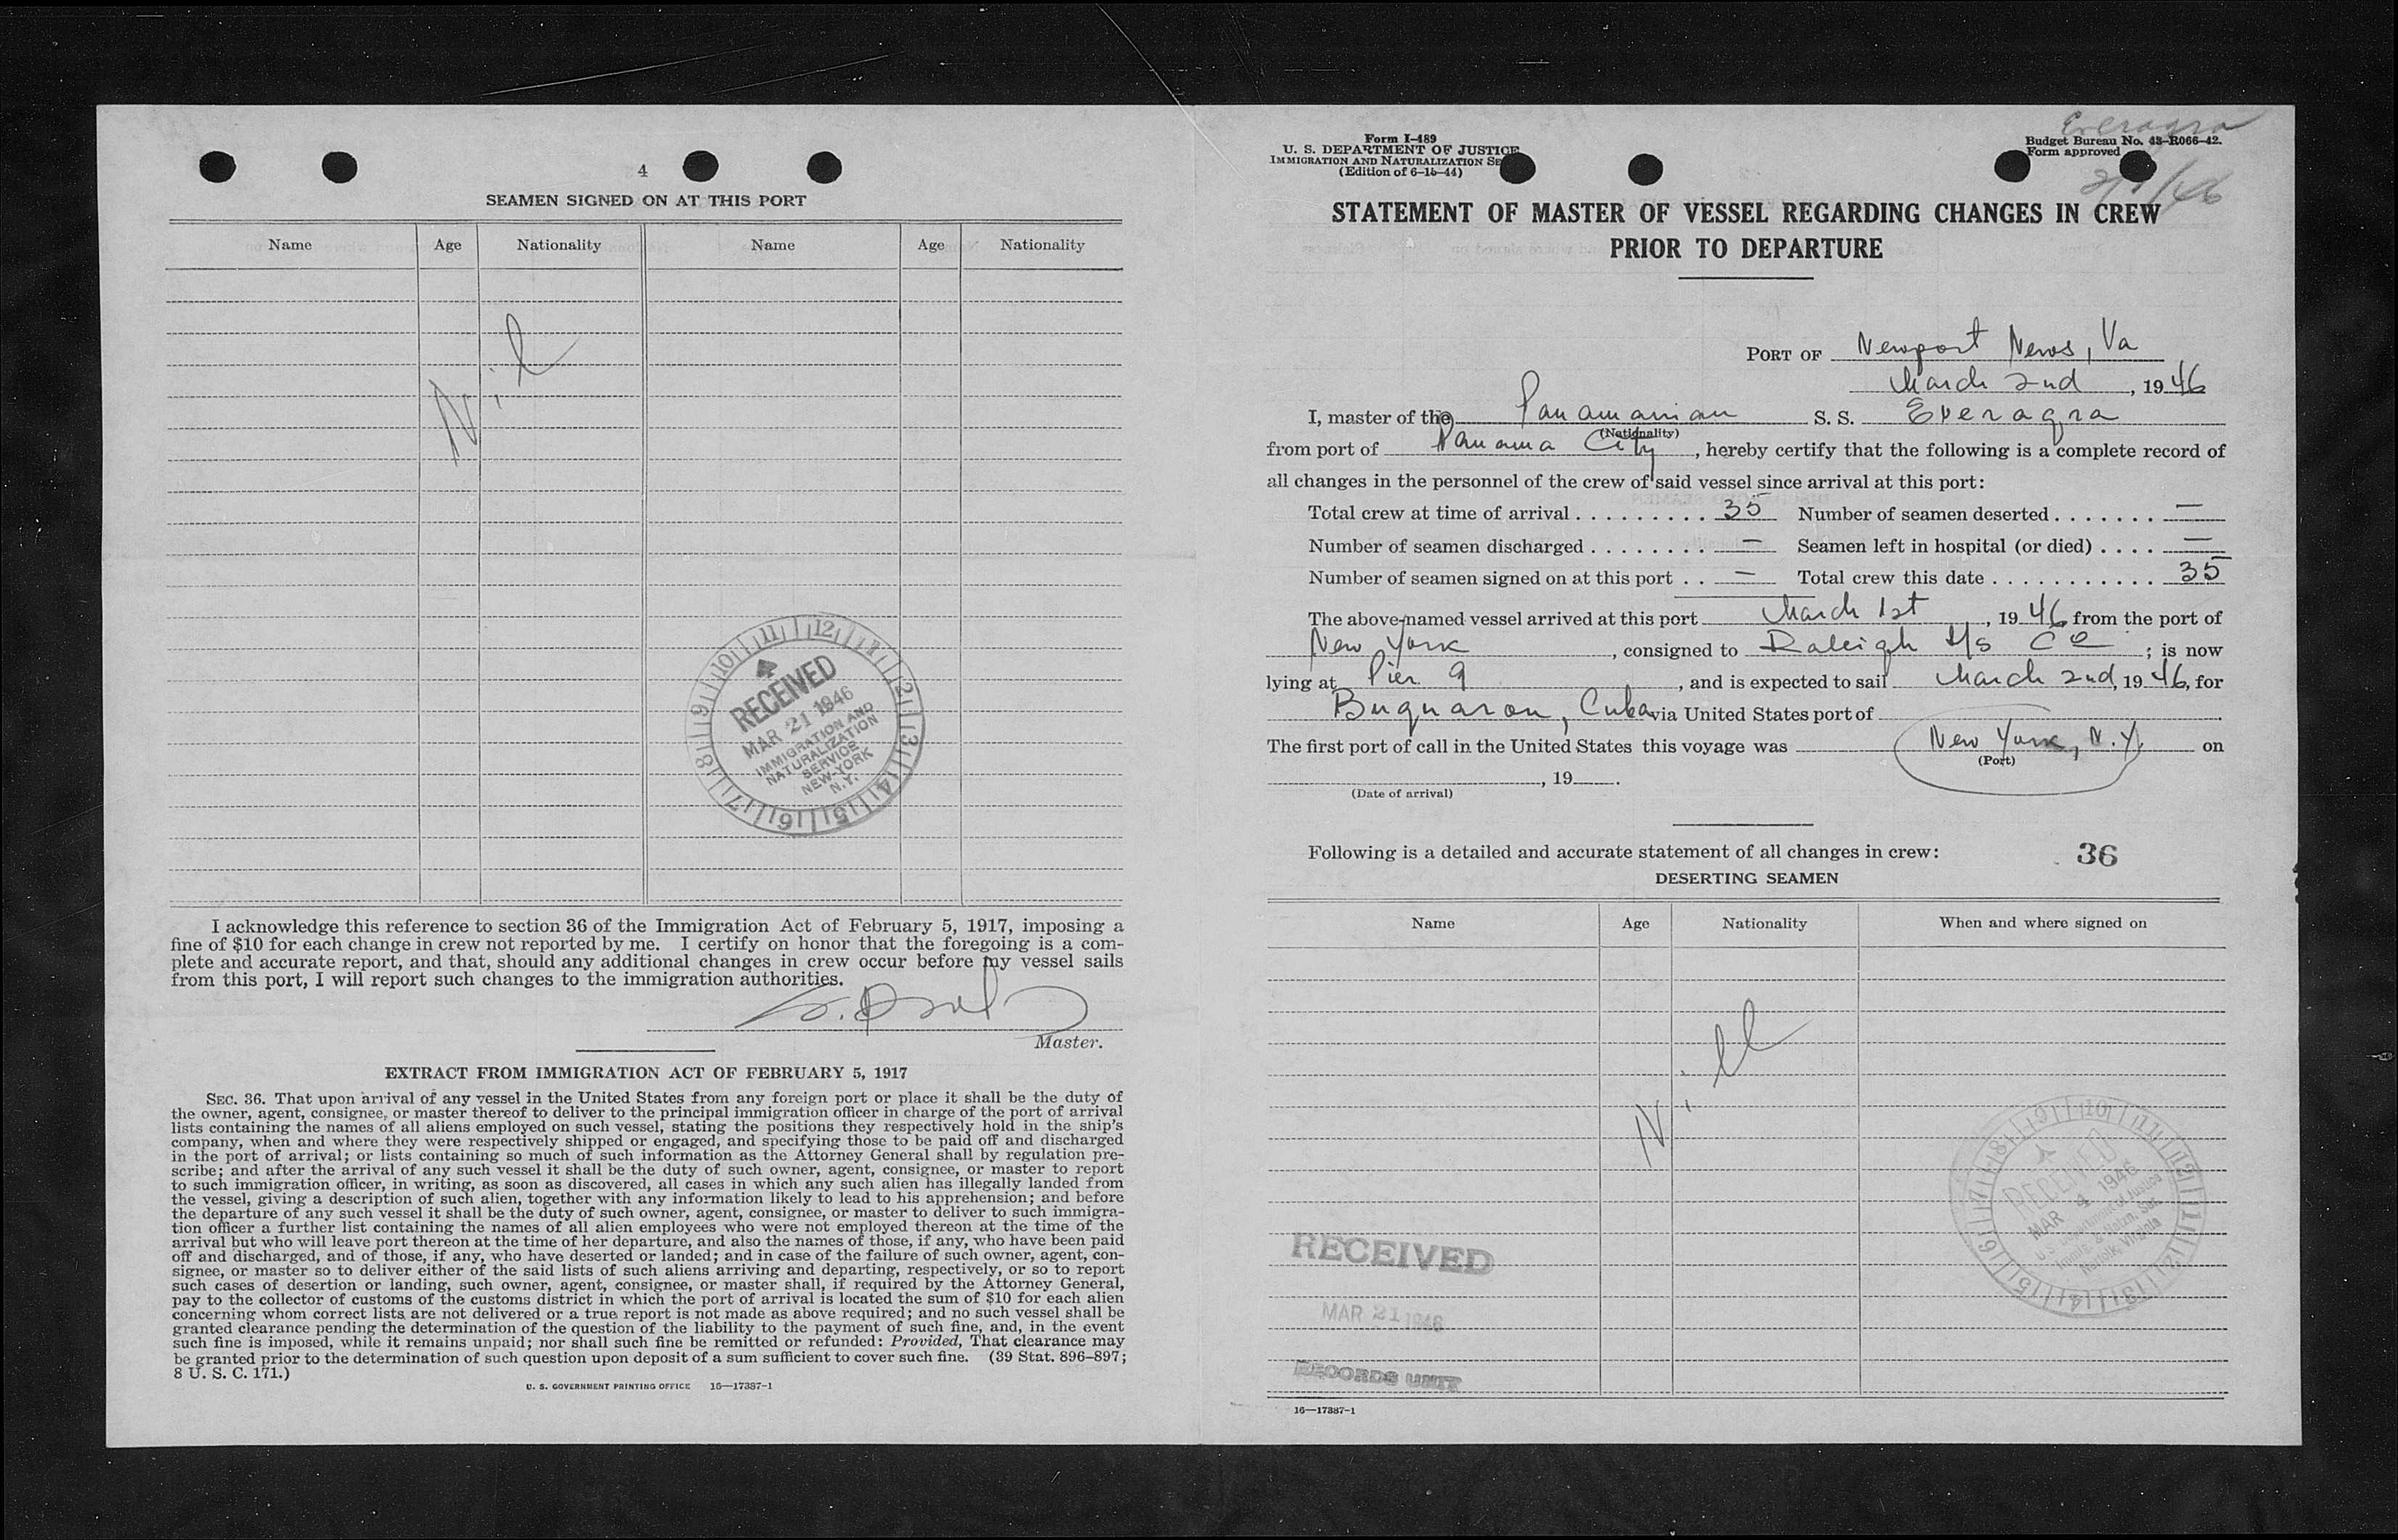 4
SEAMEN SIGNED ON AT THIS PORT
Name Age Nationality Name Age Nationality
Nil
RECEIVED
MAR 21 1946
IMMIGRATION AND
NATURALIZATION
SERVICE
NEW-YORK
N.Y.
I acknowledge this reference to section 36 of the Immigration Act of February 5, 1917, imposing a
fine of $10 for each change in crew not reported by me. I certify on honor that the foregoing is a com-
plete and accurate report, and that, should any additional changes in crew occur before my vessel sails
from this port, I will report such changes to the immigration authorities.
Master.
EXTRACT FROM IMMIGRATION ACT OF FEBRUARY 5, 1917
SEC. 36. That upon arrival of any vessel in the United States from any foreign port or place it shall be the duty of
the owner, agent, consignee, or master thereof to deliver to the principal immigration officer in charge of the port of arrival
lists containing the names of all aliens employed on such vessel, stating the positions they respectively hold in the ship's
company, when and where they were respectively shipped or engaged, and specifying those to be paid off and discharged
in the port of arrival; or lists containing so much of such information as the Attorney General shall by regulation pre-
scribe; and after the arrival of any such vessel it shall be the duty of such owner, agent, consignee, or master to report
to such immigration officer, in writing, as soon as discovered, all cases in which any such alien has illegally landed from
the vessel, giving a description of such alien, together with any information likely to lead to his apprehension; and before
the departure of any such vessel it shall be the duty of such owner, agent, consignee, or master to deliver to such immigra-
tion officer a further list containing the names of all alien employees who were not employed thereon at the time of the
arrival but who will leave port thereon at the time of her departure, and also the names of those, if any, who have been paid
off and discharged, and of those, if any, who have deserted or landed; and in case of the failure of such owner, agent, con-
signee, or master so to deliver either of the said lists of such aliens arriving and departing, respectively, or so to report
such cases of desertion or landing, such owner, agent, consignee, or master shall, if required by the Attorney General,
pay to the collector of customs of the customs district in which the port of arrival is located the sum of $10 for each alien
concerning whom correct lists are not delivered or a true report is not made as above required; and no such vessel shall be
granted clearance pending the determination of the question of the liability to the payment of such fine, and, in the event
such fine is imposed, while it remains unpaid; nor shall such fine be remitted or refunded: Provided, That clearance may
be granted prior to the determination of such question upon deposit of a sum sufficient to cover such fine. (39 Stat. 896–897;
8 U. S. C. 171.)
U. S. GOVERNMENT PRINTING OFFICE 16—17387-1
Everagra
Form I-489
U. S. DEPARTMENT OF JUSTICE
IMMIGRATION AND NATURALIZATION SE
(Edition of 6-15-44)
Budget Bureau No. 43-R066-42.
Form approved
STATEMENT OF MASTER OF VESSEL REGARDING CHANGES IN CREW
PRIOR TO DEPARTURE
PORT OF Newport News, Va
March 2nd, 1946
I, master of the Panamanian S. S. Everagra
(Nationality)
from port of Panama City, hereby certify that the following is a complete record of
all changes in the personnel of the crew of said vessel since arrival at this port:
Total crew at time of arrival 35 Number of seamen deserted —
Number of seamen discharged — Seamen left in hospital (or died) —
Number of seamen signed on at this port — Total crew this date 35
The above-named vessel arrived at this port March 1st, 1946 from the port of
New York, consigned to Raleigh S/S Co; is now
lying at Pier 9, and is expected to sail March 2nd, 1946, for
Buquaron, Cuba via United States port of
The first port of call in the United States this voyage was New York, N.Y. on
(Port)
, 19 .
(Date of arrival)
Following is a detailed and accurate statement of all changes in crew: 36
DESERTING SEAMEN
Name Age Nationality When and where signed on
Nill
RECEIVED
MAR 4 1946
U. S. Department of Justice
Immig. & Natzn. Ser.
Norfolk, Virginia
RECEIVED
MAR 21 1946
RECORDS UNIT
16—17387-1